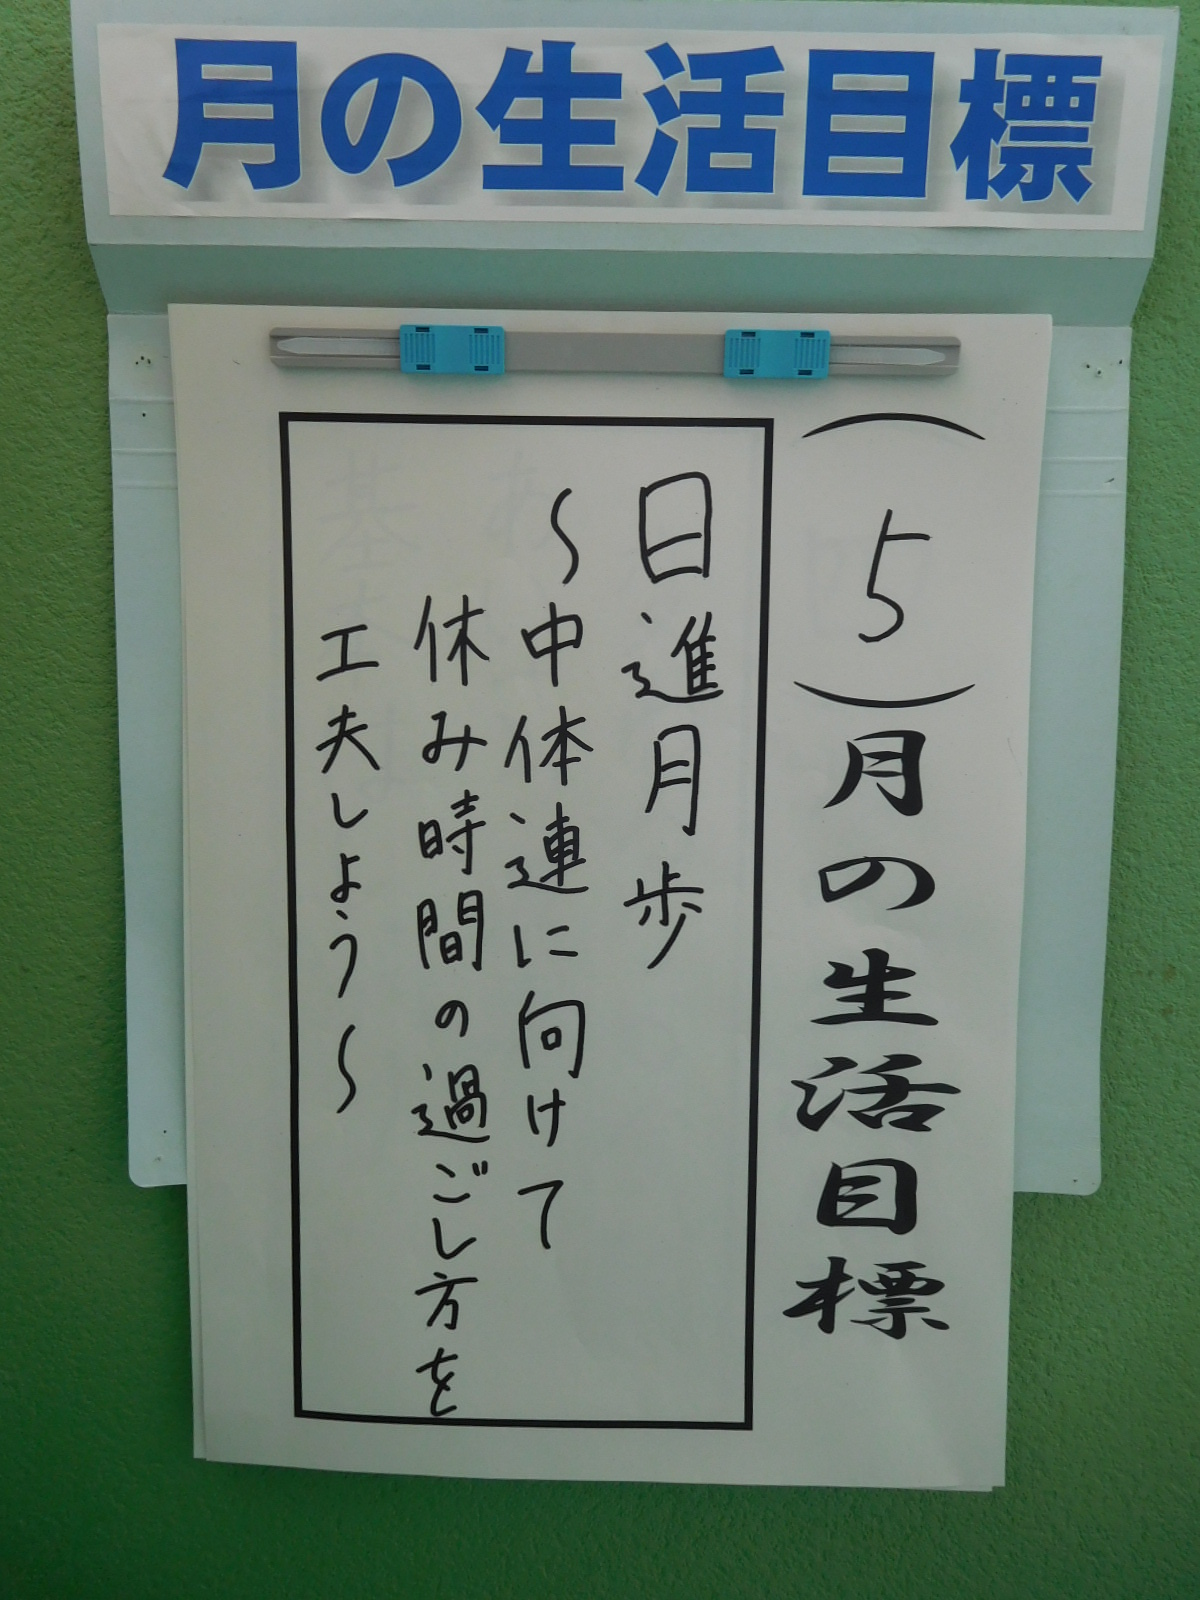 月の生活目標
(5)月の生活目標
日進月歩
〜中体連に向けて
休み時間の過ごし方を
工夫しましょう〜